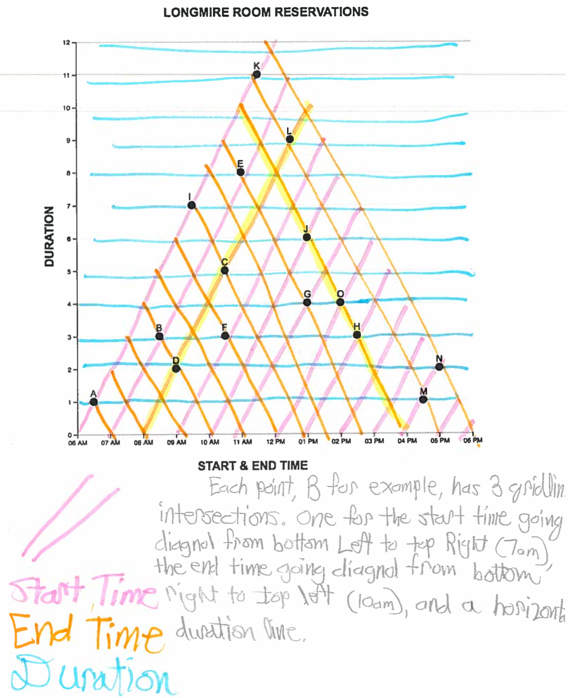 LONGMIRE ROOM RESERVATIONS
12
11
K
10
L
9
E
8
I
7
DURATION
J
6
C
5
G
O
4
B
F
H
3
D
N
2
A
M
1
0
06 AM 07 AM 08 AM 09 AM 10 AM 11 AM 12 PM 01 PM 02 PM 03 PM 04 PM 05 PM 06 PM
START & END TIME
Each point, B for example, has 3 gridlin
intersections. One for the start time going
diagnol from bottom Left to top Right (7am),
the end time going diagnol from bottom
right to top left (10am), and a horizont
duration line.
Start Time
End Time
Duration